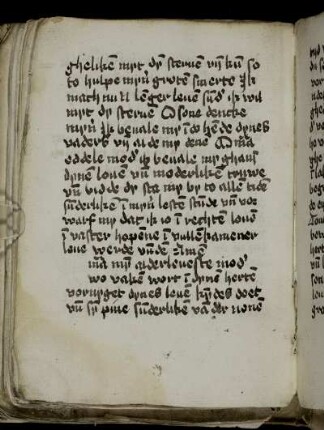 gheliken myt dy steruen vñ kū so
to hulpe myn̄ groten smerte Ik
mach nicht lenger leuen sūd' ik wil
myt dy steruen O sone dencke
myn̄ Ik beuale my ī de hēde dynes
vaders vñ alde my dene O m̄a
eddele mod' ik beuale my ghans
dyner loue vñ moderliken truwe
vñ bidde dy sta my by to alle tidē
sūderlikē ī myn̄ leste stūde vñ vor
warf my dat ik so ī rechte louē
ī vaster hopene ī vullēkamener
loue werde vūde Amē
m̄a myn alderleueste mod'
wo vake wort ī dyneme herte
vornyget dynes leuē kȳdes doet
vñ syn pine sūderliken vā der none